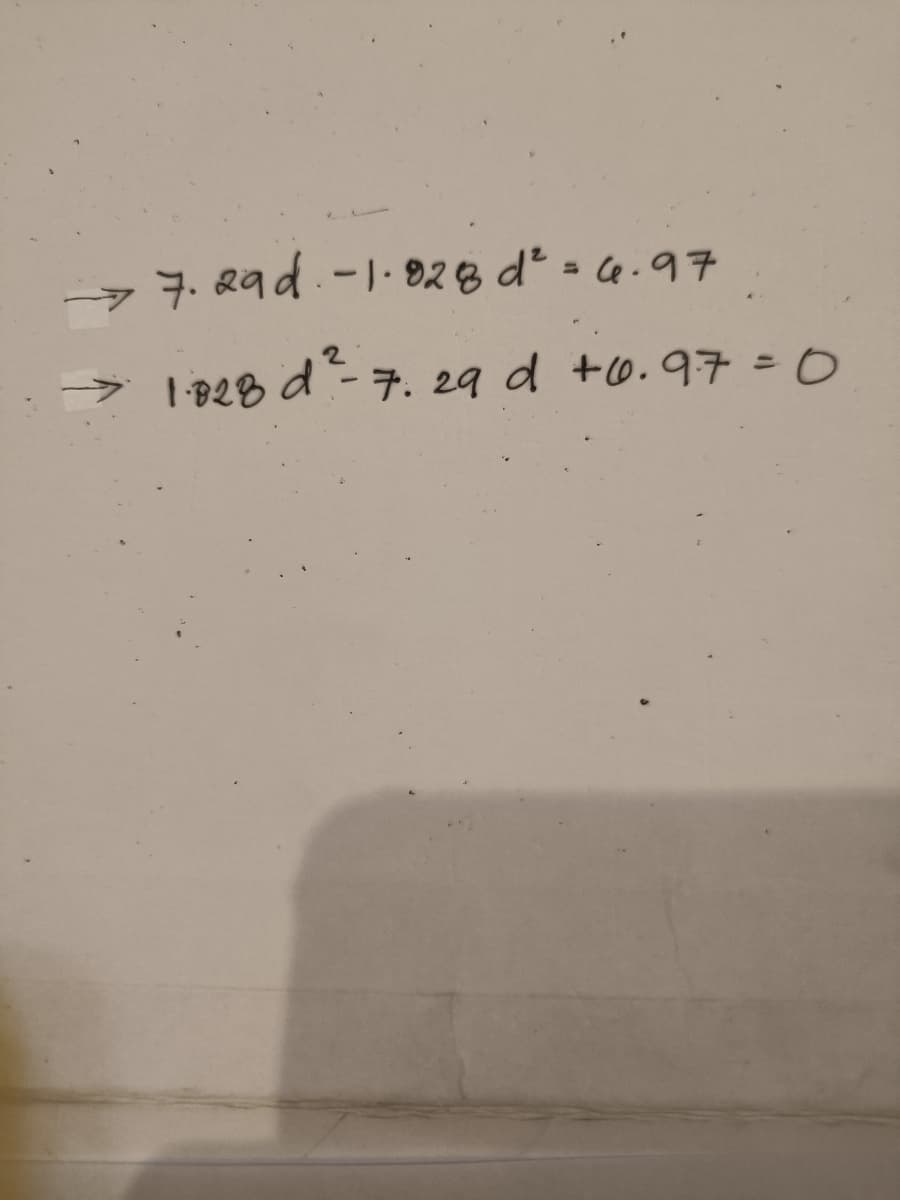 → 7.29d - 1.828 d² = 6.97
→ 1.828 d² - 7.29 d + 6.97 = 0